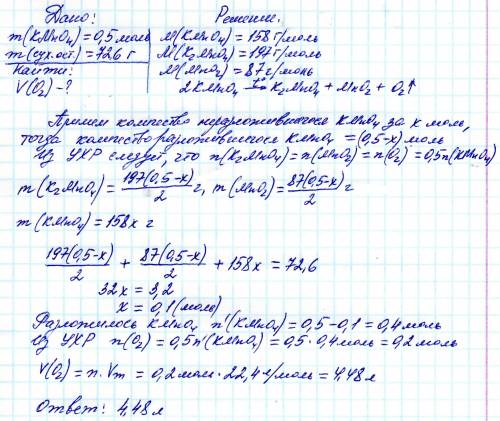 Дано:
m(KMnO4)=0,5 моль
m(сух.ост.)=72,6 г
Найти:
V(O2)-?
Решение.
M(KMnO4)=158 г/моль
M(K2MnO4)=197 г/моль
M(MnO2)=87 г/моль
2KMnO4 t°→ K2MnO4 + MnO2 + O2↑
Примем количество неразложившегося KMnO4 за x моль,
тогда количество разложившегося KMnO4 = (0,5-x) моль
Из УХР следует, что n(K2MnO4)=n(MnO2)=n(O2)=0,5n(KMnO4)
m(K2MnO4)=197(0,5-x)/2 г, m(MnO2)=87(0,5-x)/2 г
m(KMnO4)=158x г
197(0,5-x)/2 + 87(0,5-x)/2 + 158x = 72,6
32x = 3,2
x = 0,1 (моль)
Разложилось KMnO4 n'(KMnO4)=0,5-0,1=0,4 моль
Из УХР n(O2)=0,5n(KMnO4)=0,5·0,4моль=0,2 моль
V(O2)=n·Vm=0,2 моль·22,4 л/моль=4,48 л
Ответ: 4,48 л